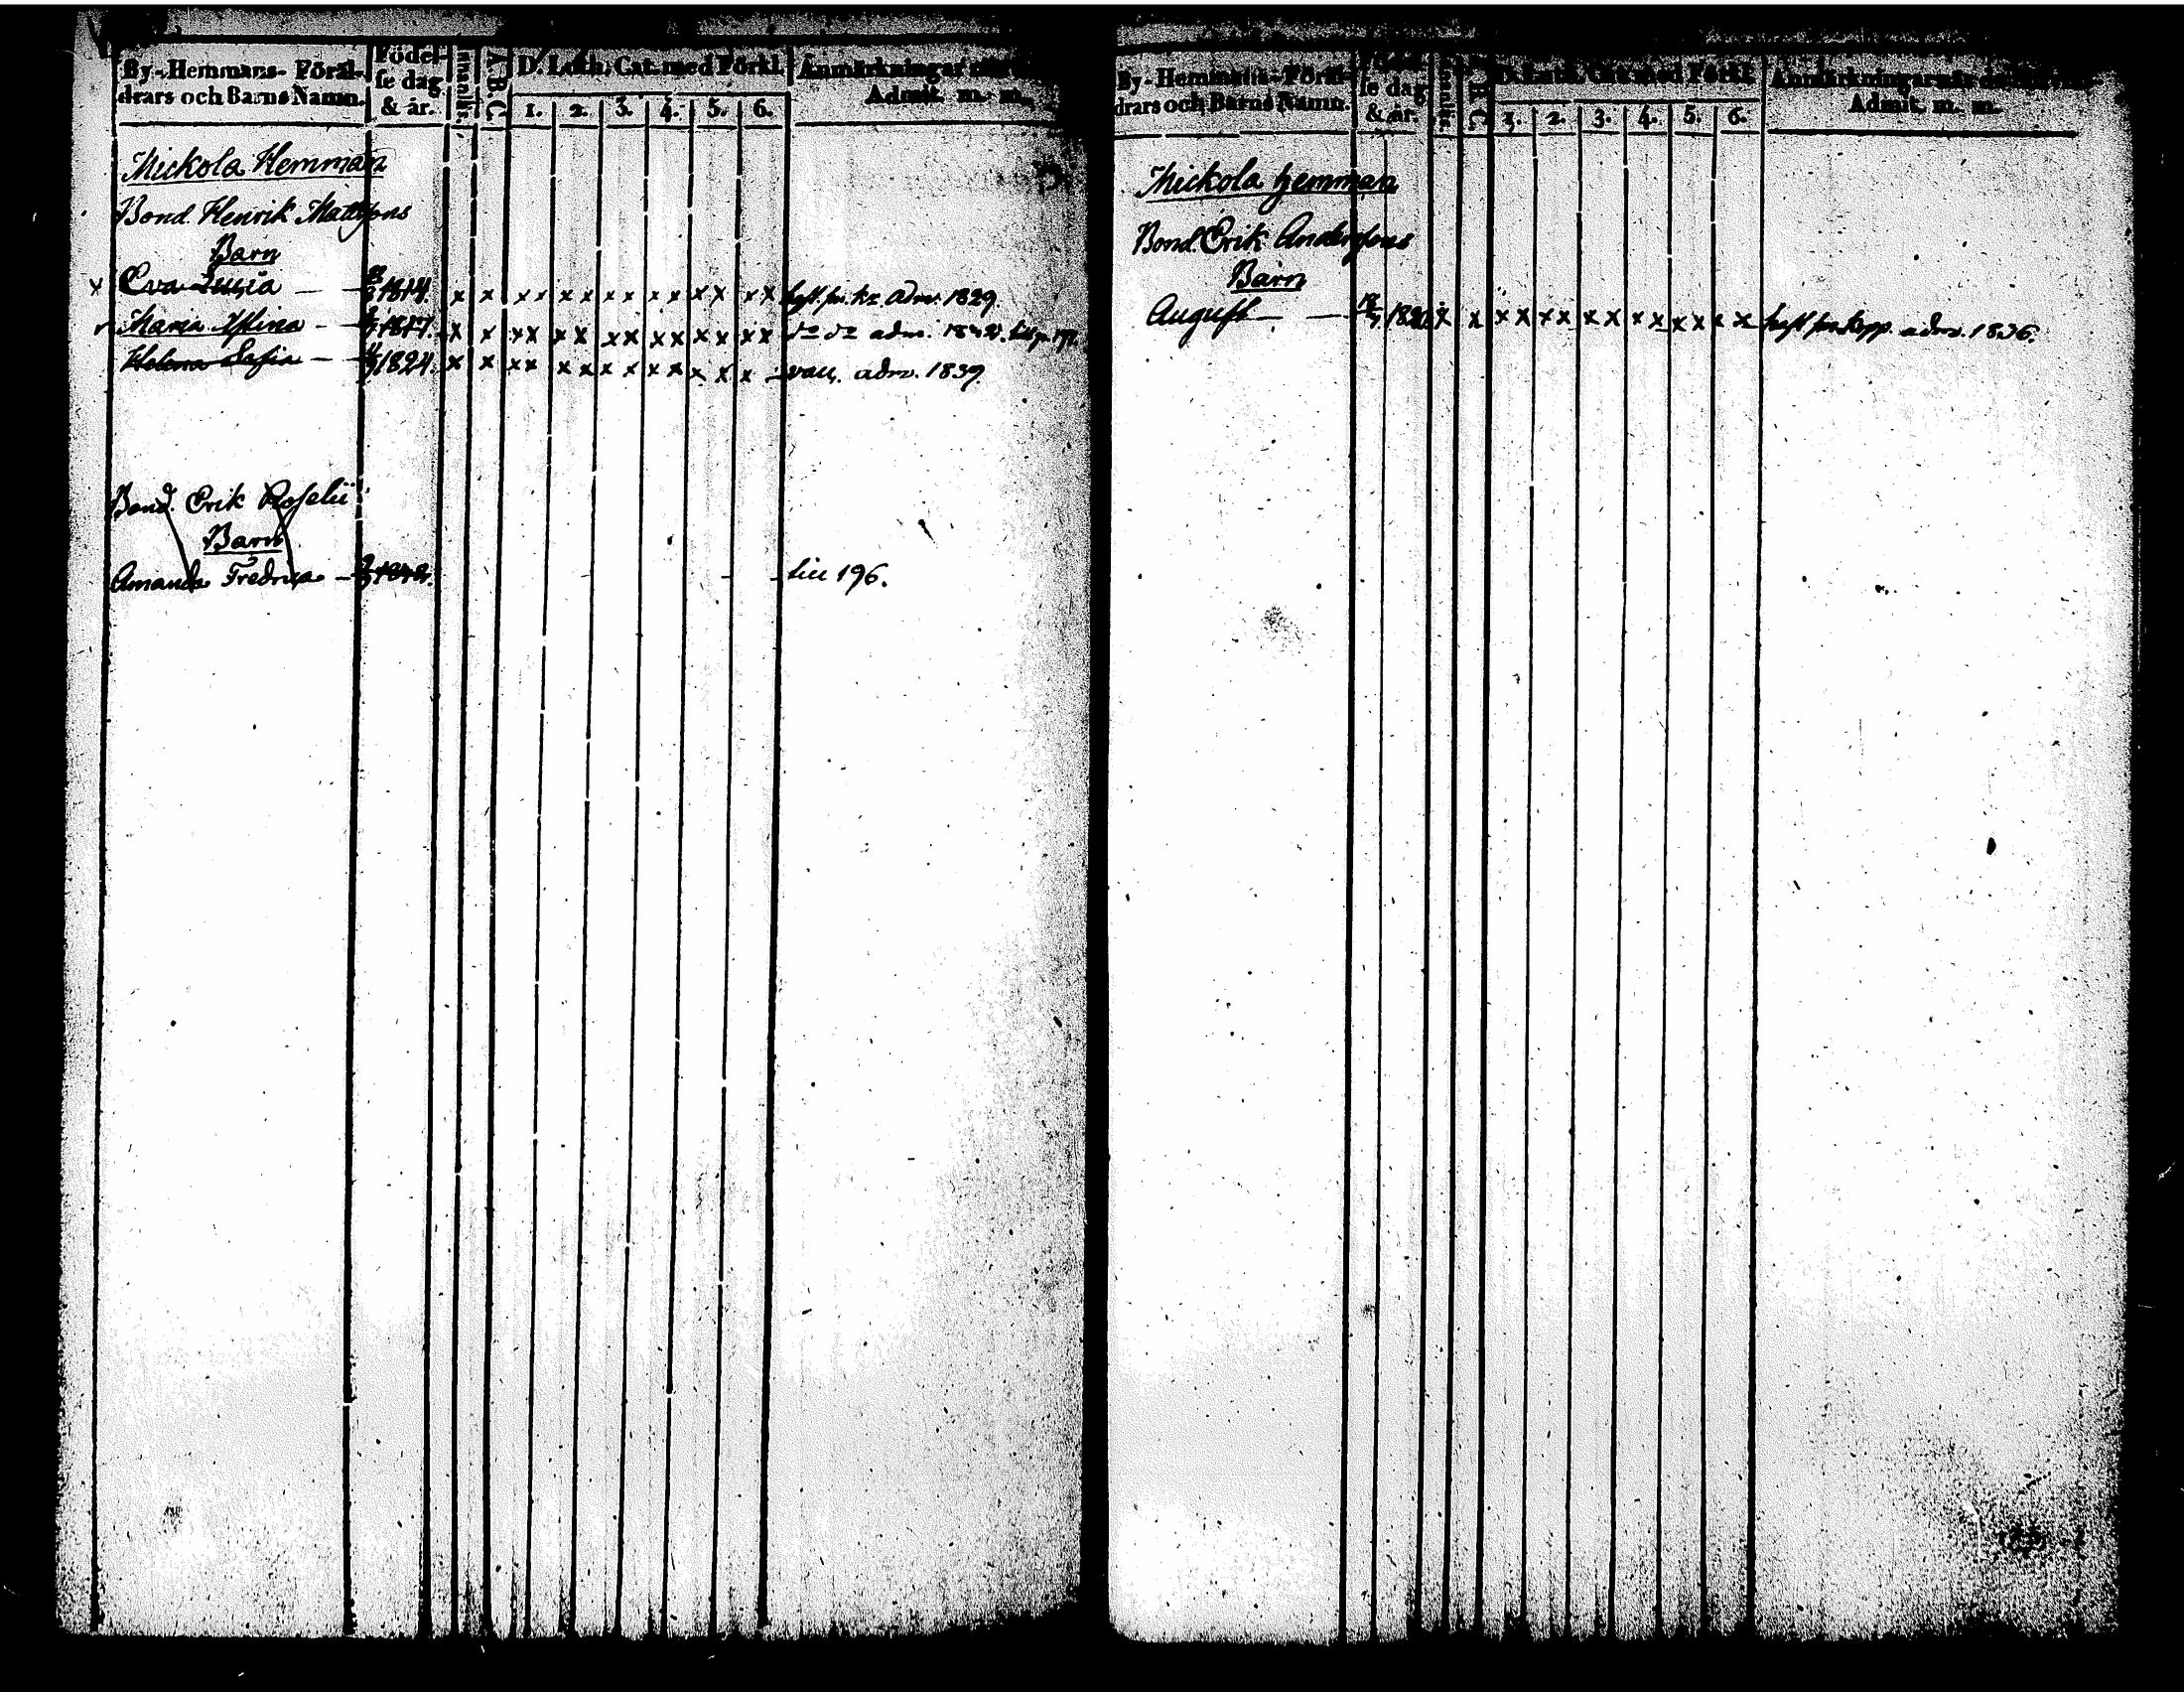 By-Hemmans- Föräl-
drars och Barns Namn.
Födel-
se dag
& år.
A B C.
D. Luth. Cat. med Förkl.
1. 2. 3. 4. 5. 6.
Anmärkningar
Admit. m. m.
Mickola Hemman
Bond. Henrik Mattssons
Barn
x Eva Lusia — 1814. x x x x x x x x x x x x x x adm. 1829.
Maria 1817. x x x x x x x x x x x x x x do do adm.
Helena Sofia — 1824. x x x x x x x x x x x x x adm. 1839.
Bond. Erik
Barn
Amanda Fredrica — till 196.
By-Hemmans- Föräl-
drars och Barns Namn.
se dag
& år.
C.
D. Luth. Cat. med Förkl.
1. 2. 3. 4. 5. 6.
Anmärkningar
Admit. m. m.
Mickola hemman
Bond. Erik Anderssons
Barn
August — x x x x x x x x x x x x x x kopp. adm. 1836.